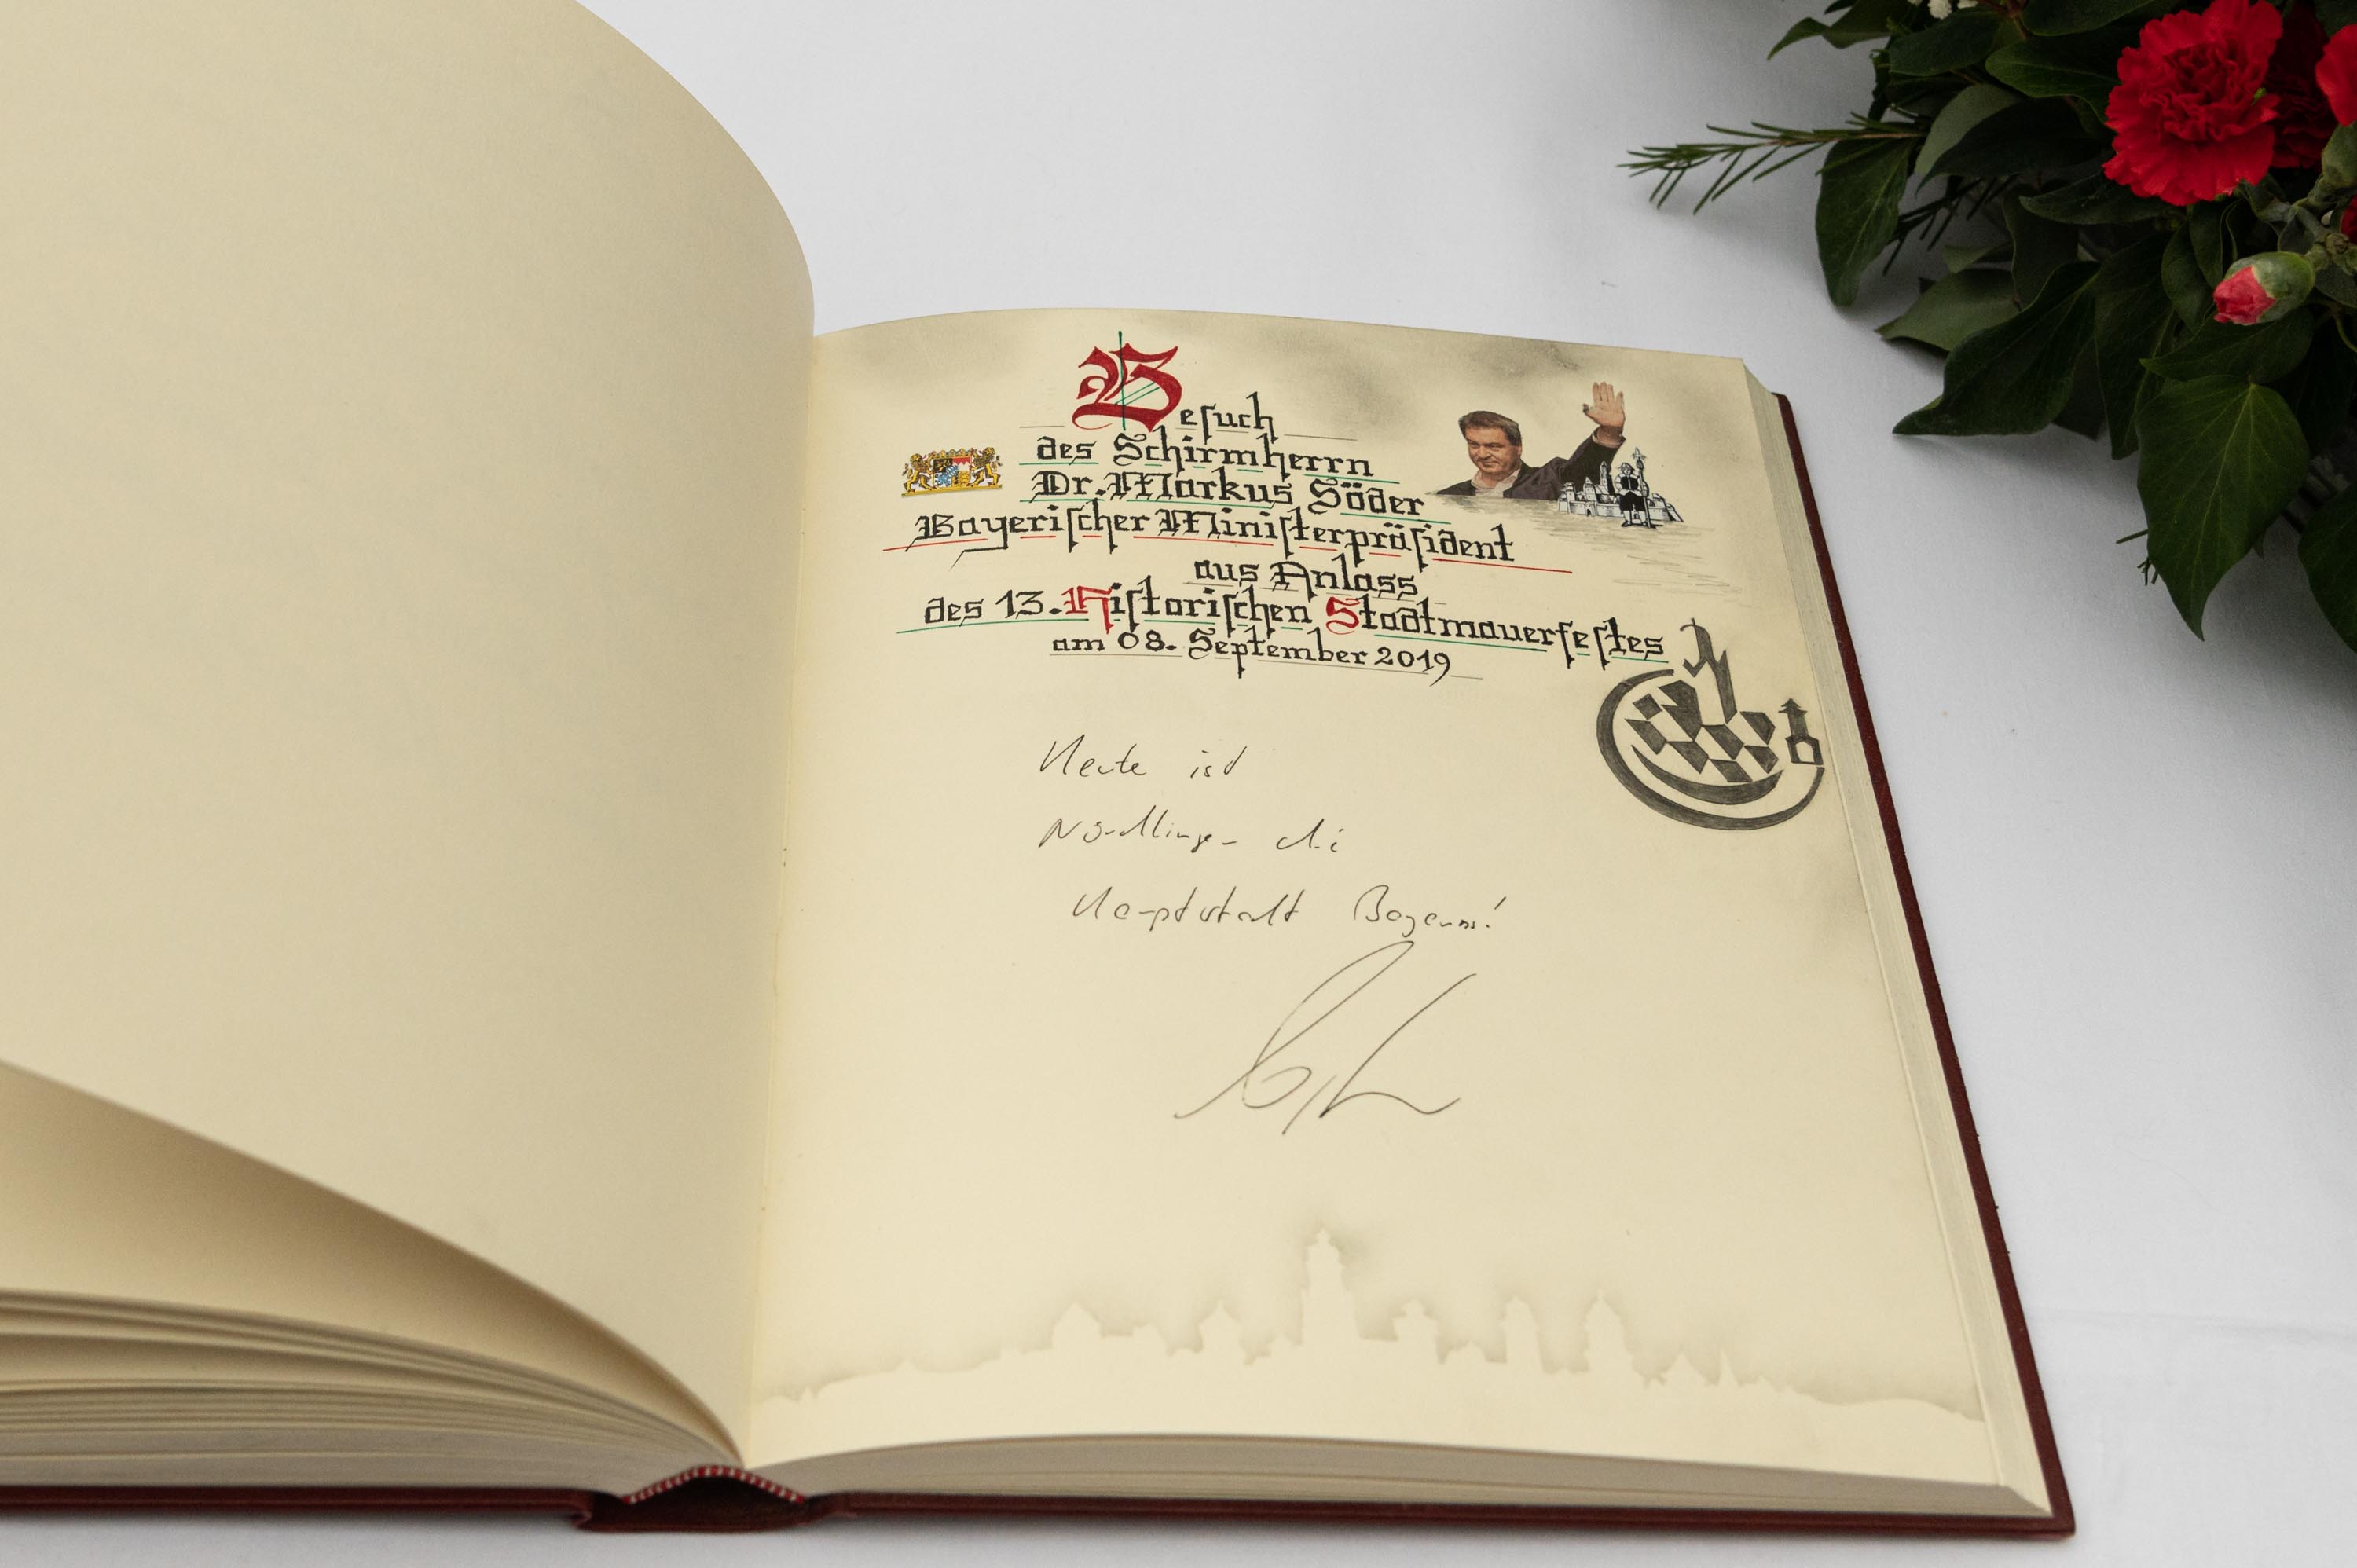 Besuch
des Schirmherrn
Dr. Markus Söder
Bayerischer Ministerpräsident
aus Anlass
des 13. Historischen Stadtmauerfestes
am 08. September 2019
Heute ist
Nördlingen die
Hauptstadt Bayerns!